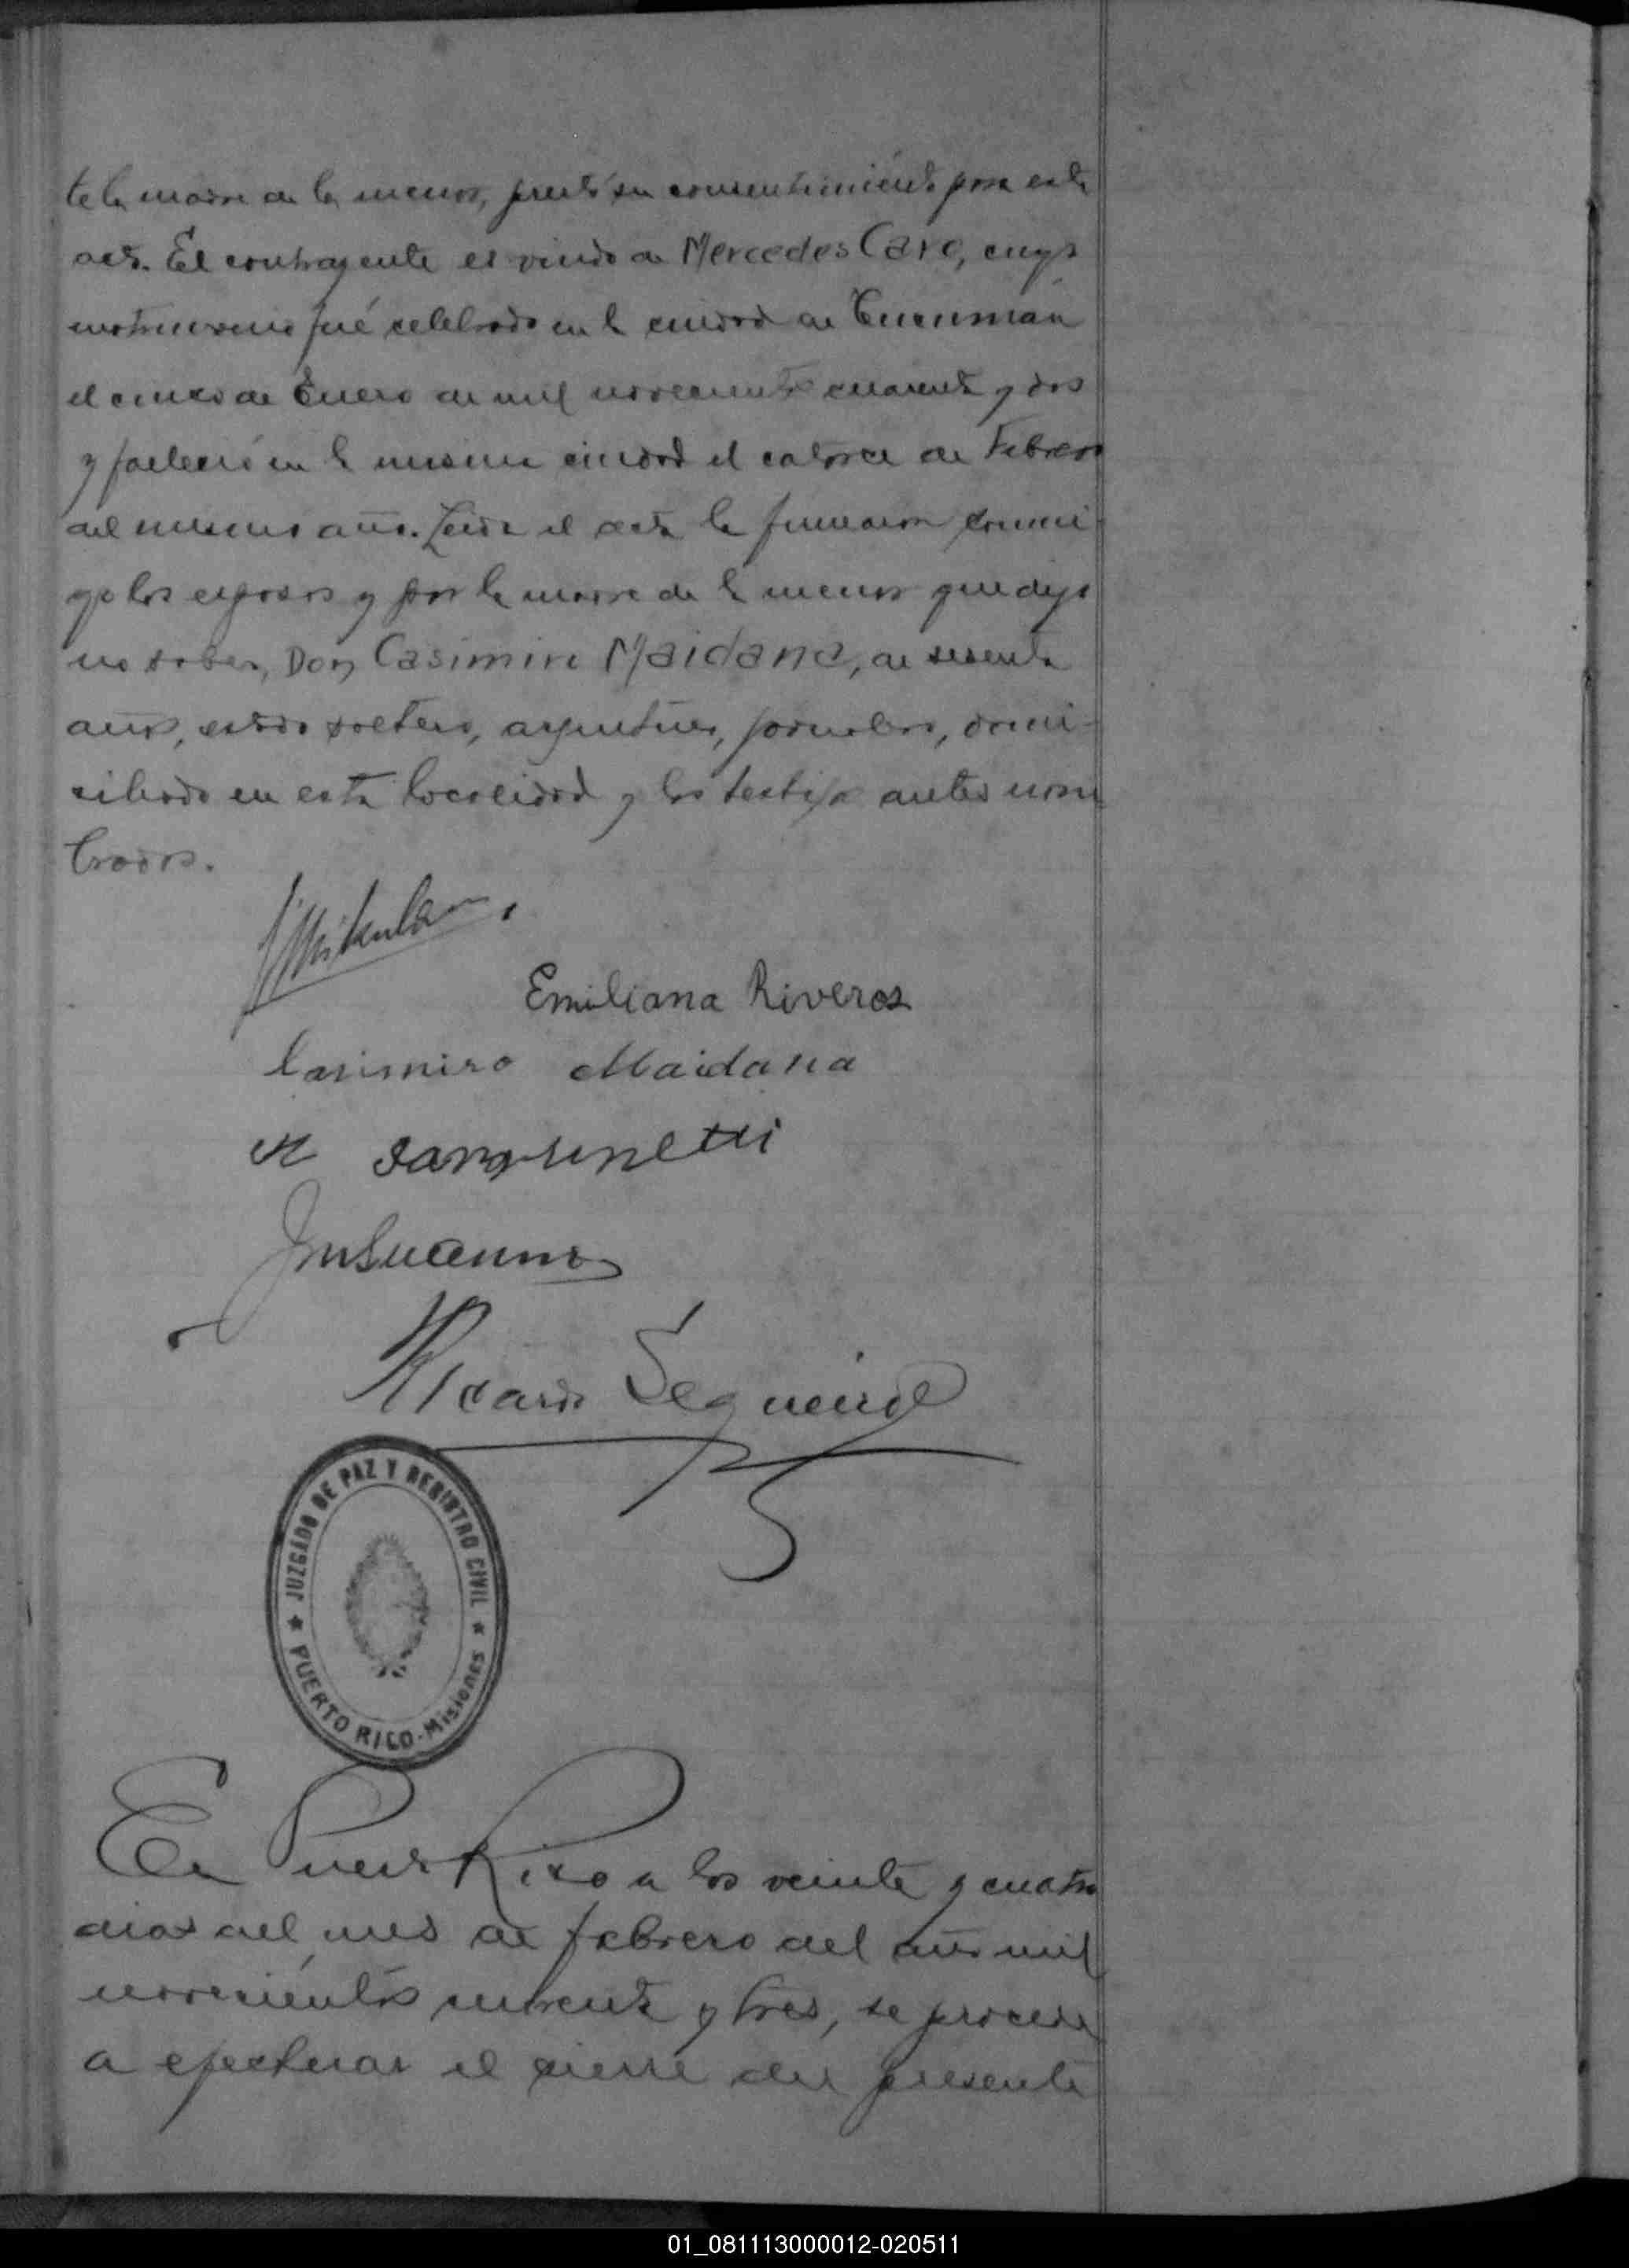 te la madre de la menor, prestó su consentimiento para este
acto. El contrayente es viudo de Mercedes Caro, cuyo
matrimonio fué celebrado en la ciudad de Tucumán
el cinco de Enero de mil novecientos cuarenta y dos
y falleció en la misma ciudad el catorce de Febrero
del mismo año. Leida el acta la firmaron conmi-
go los esposos y por la madre de la menor que dijo
no saber, Don Casimiro Maidana, de sesenta
años, estado soltero, argentino, jornalero, domi-
ciliado en esta localidad y los testigos antes nom
brados.
Emiliana Riveros
Casimiro Maidana
Sanguinetti
Ricardo Sequeira
JUZGADO DE PAZ Y REGISTRO CIVIL
PUERTO RICO - Misiones
En Puerto Rico a los veinte y cuatro
dias del mes de febrero del año mil
novecientos cuarenta y tres, se procede
a efectuar el cierre del presente
01_081113000012-020511